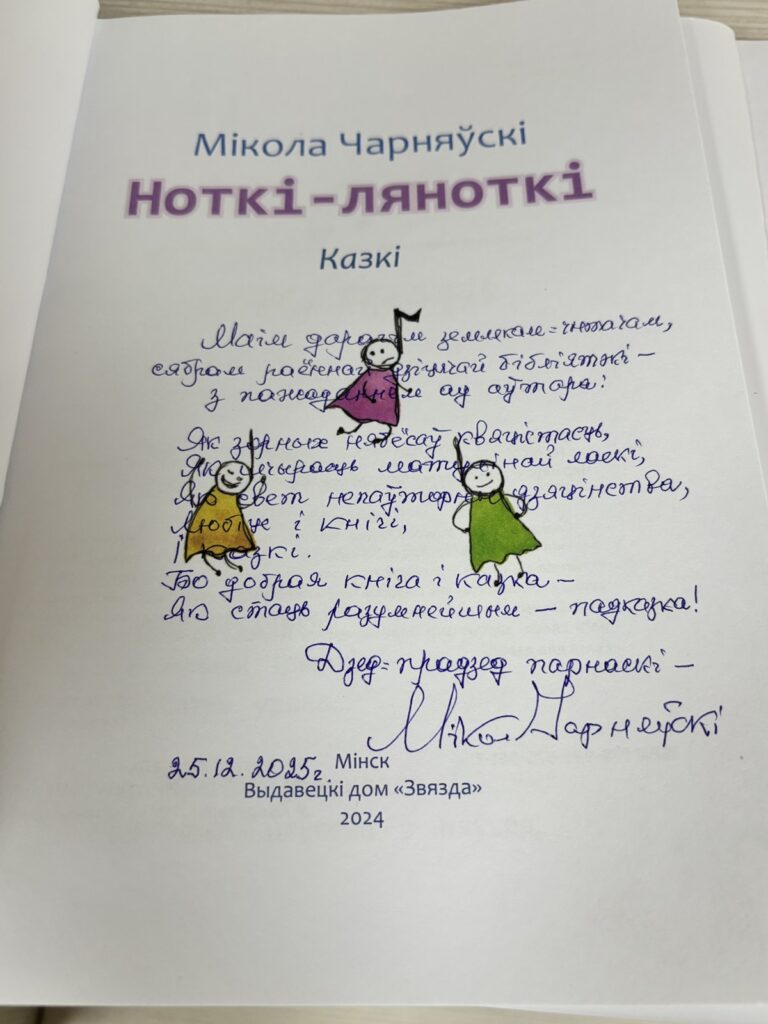 Мікола Чарняўскі
Ноткі-ляноткі
Казкі
Маім дарагім землякам-чытачам,
сябрам раённай дзіцячай бібліятэкі –
з пажаданнем ад аўтара:
Як зорных нябёсаў квяцістасць,
Як шчырасць матулінай ласкі,
Як свет непаўторны дзяцінства,
Любіце і кнігі,
І казкі.
Бо добрая кніга і казка –
Як стаць разумнейшым – падказка!
Дзед-прадзед парнаскі –
Мікола Чарняўскі
25.12.2025г.
Мінск
Выдавецкі дом «Звязда»
2024